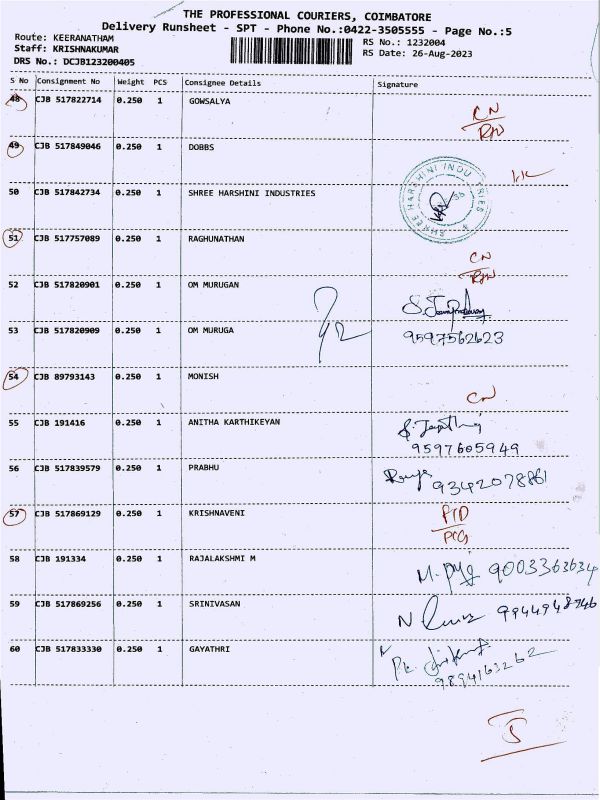 THE PROFESSIONAL COURIERS, COIMBATORE
Delivery Runsheet - SPT - Phone No.:0422-3505555 - Page No.:5
Route: KEERANATHAM
Staff: KRISHNAKUMAR
DRS No.: DCJB123200405
RS No.: 1232004
RS Date: 26-Aug-2023
S No Consignment No Weight PCS Consignee Details Signature
48 CJB 517822714 0.250 1 GOWSALYA CN
49 CJB 517849046 0.250 1 DOBBS
50 CJB 517842734 0.250 1 SHREE HARSHINI INDUSTRIES
SHREE HARSHINI INDUSTRIES
51 CJB 517757089 0.250 1 RAGHUNATHAN CN
52 CJB 517820901 0.250 1 OM MURUGAN
53 CJB 517820909 0.250 1 OM MURUGA 9597562623
54 CJB 89793143 0.250 1 MONISH CN
55 CJB 191416 0.250 1 ANITHA KARTHIKEYAN
9597605949
56 CJB 517839579 0.250 1 PRABHU 9342078861
57 CJB 517869129 0.250 1 KRISHNAVENI
58 CJB 191334 0.250 1 RAJALAKSHMI M 9003363634
59 CJB 517869256 0.250 1 SRINIVASAN
60 CJB 517833330 0.250 1 GAYATHRI
9894163262